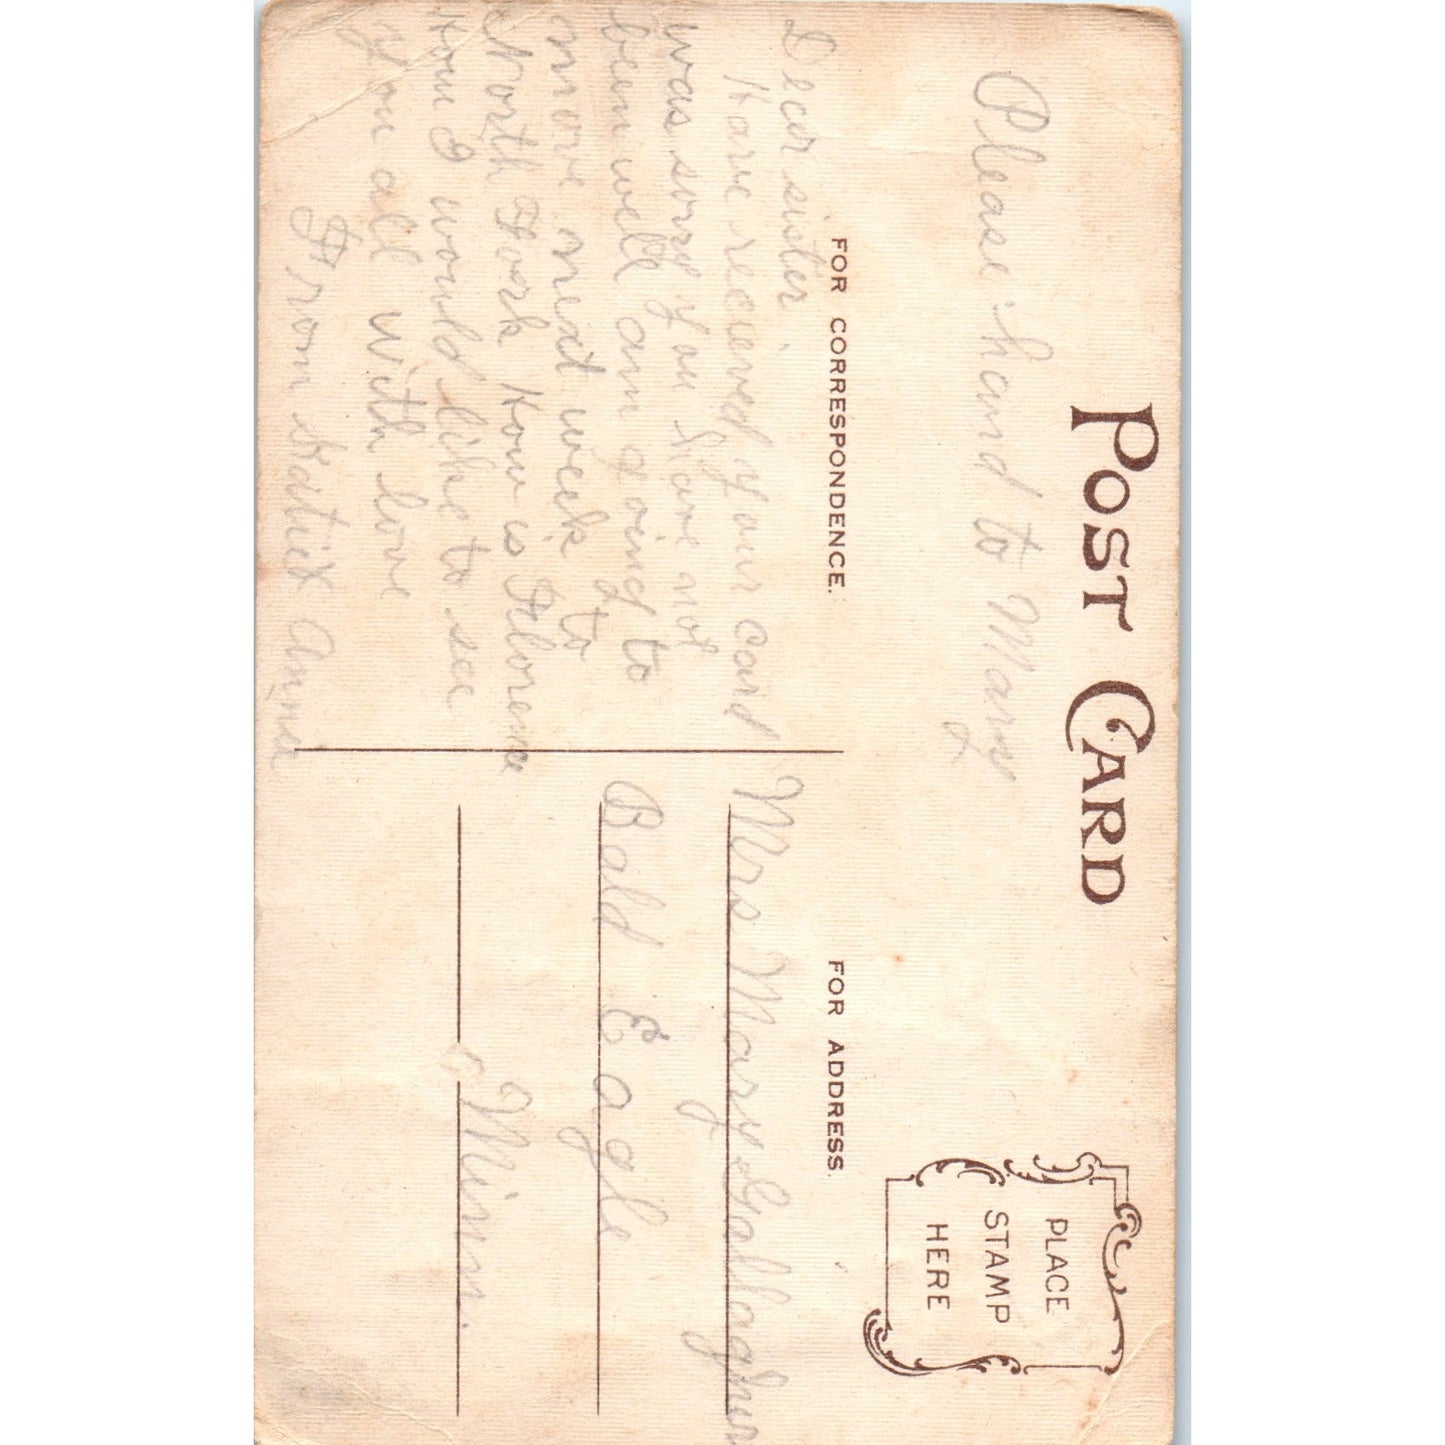 POST CARD
Please hand to Mary
PLACE
STAMP
HERE
FOR CORRESPONDENCE.
Dear sister.
Have recieved your card
was sorry you have not
been well am going to
move next week to
North Fork How is Florence
How I would like to see
you all with love
From
FOR ADDRESS.
Mrs Mary Gallagher
Bald Eagle
Minn.